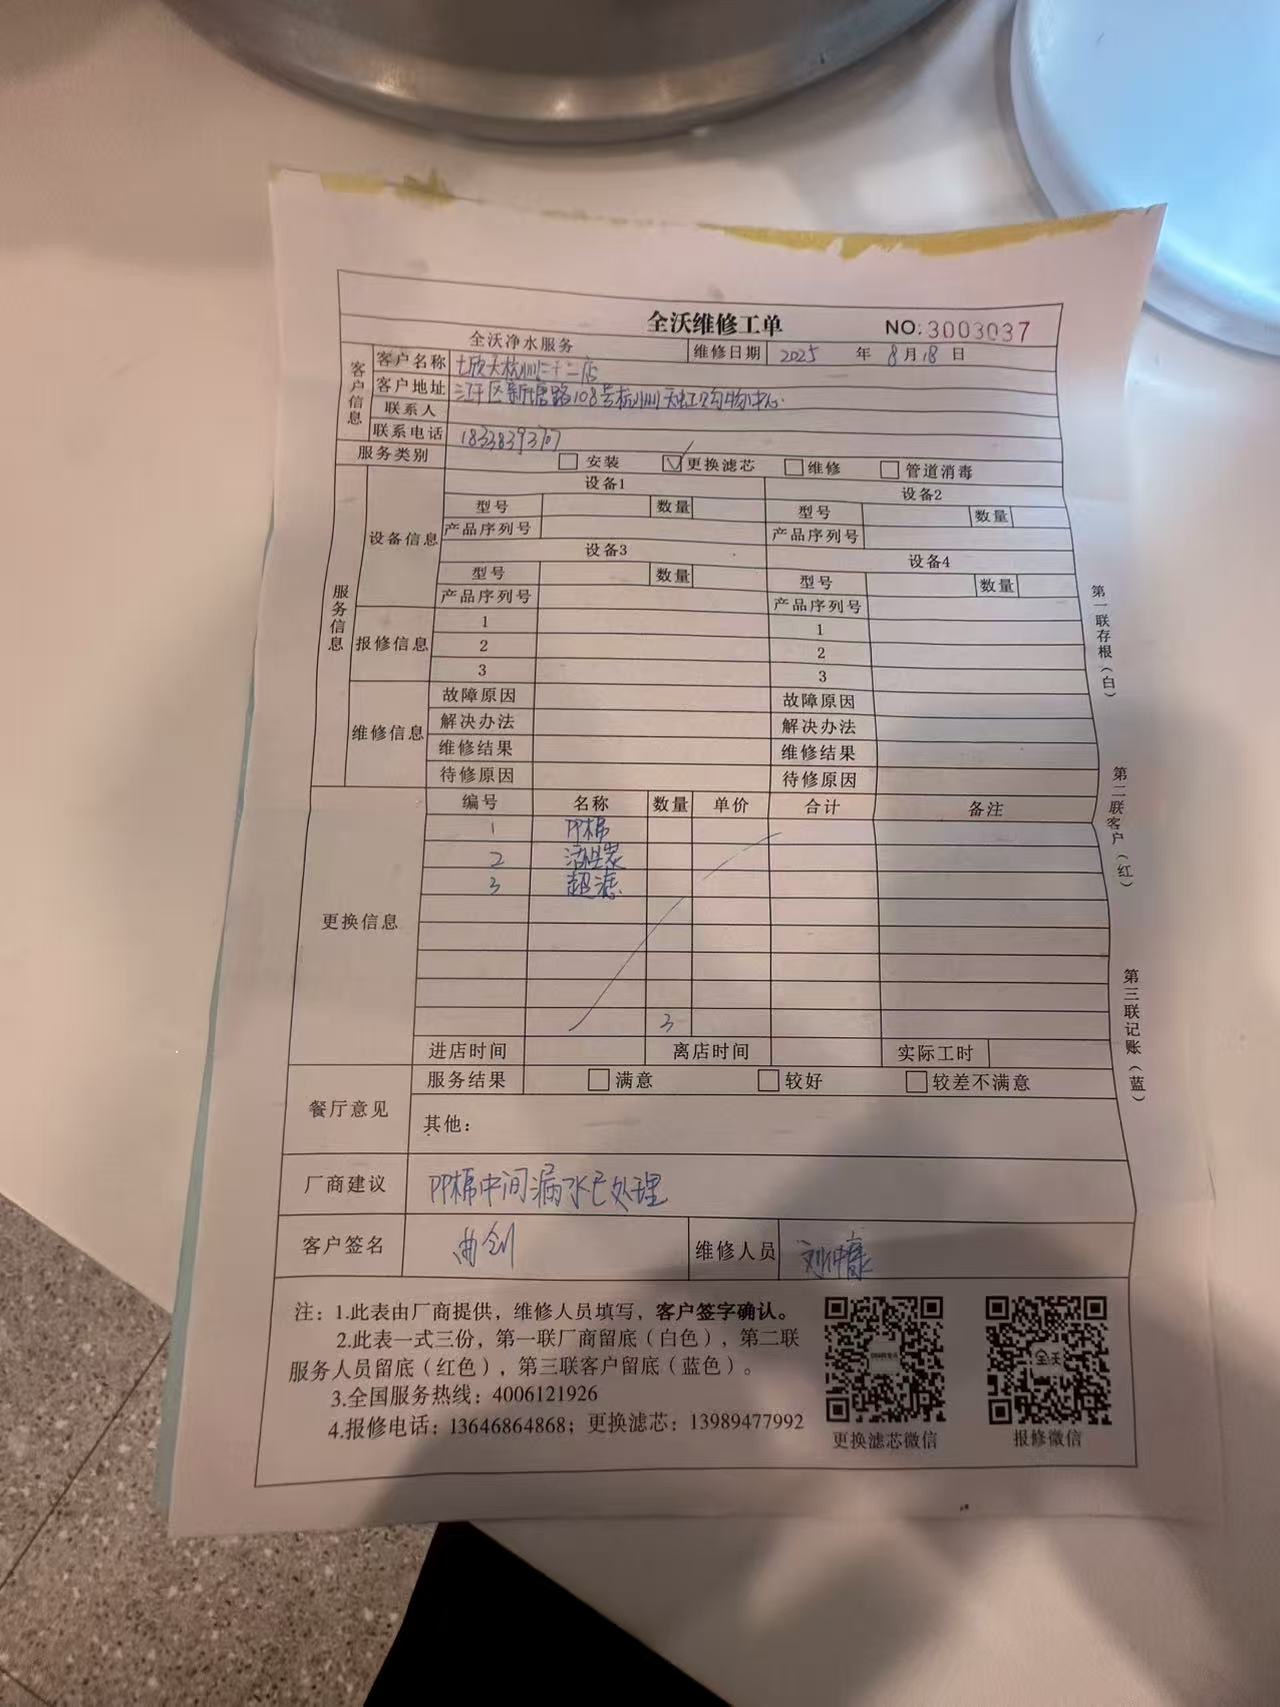 全沃维修工单 NO:3003037
全沃净水服务 维修日期 2025 年 8月18日
客户信息
客户名称 七欣天杭州二十二店
客户地址 江干区新塘路108号杭州天虹购物中心
联系人
联系电话 18338393707
服务类别 安装 更换滤芯 维修 管道消毒
服务信息
设备信息
设备1 设备2
型号 数量 型号 数量
产品序列号 产品序列号
设备3 设备4
型号 数量 型号 数量
产品序列号 产品序列号
报修信息
1 1
2 2
3 3
维修信息
故障原因 故障原因
解决办法 解决办法
维修结果 维修结果
待修原因 待修原因
更换信息
编号 名称 数量 单价 合计 备注
1 PP棉
2 活性炭
3 超滤
3
进店时间 离店时间 实际工时
餐厅意见
服务结果 满意 较好 较差不满意
其他：
厂商建议 PP棉中间漏水已处理
客户签名 维修人员
注：1.此表由厂商提供，维修人员填写，客户签字确认。
2.此表一式三份，第一联厂商留底（白色），第二联
服务人员留底（红色），第三联客户留底（蓝色）。
3.全国服务热线：4006121926
4.报修电话：13646864868；更换滤芯：13989477992
更换滤芯微信 报修微信
第一联存根（白）
第二联客户（红）
第三联记账（蓝）